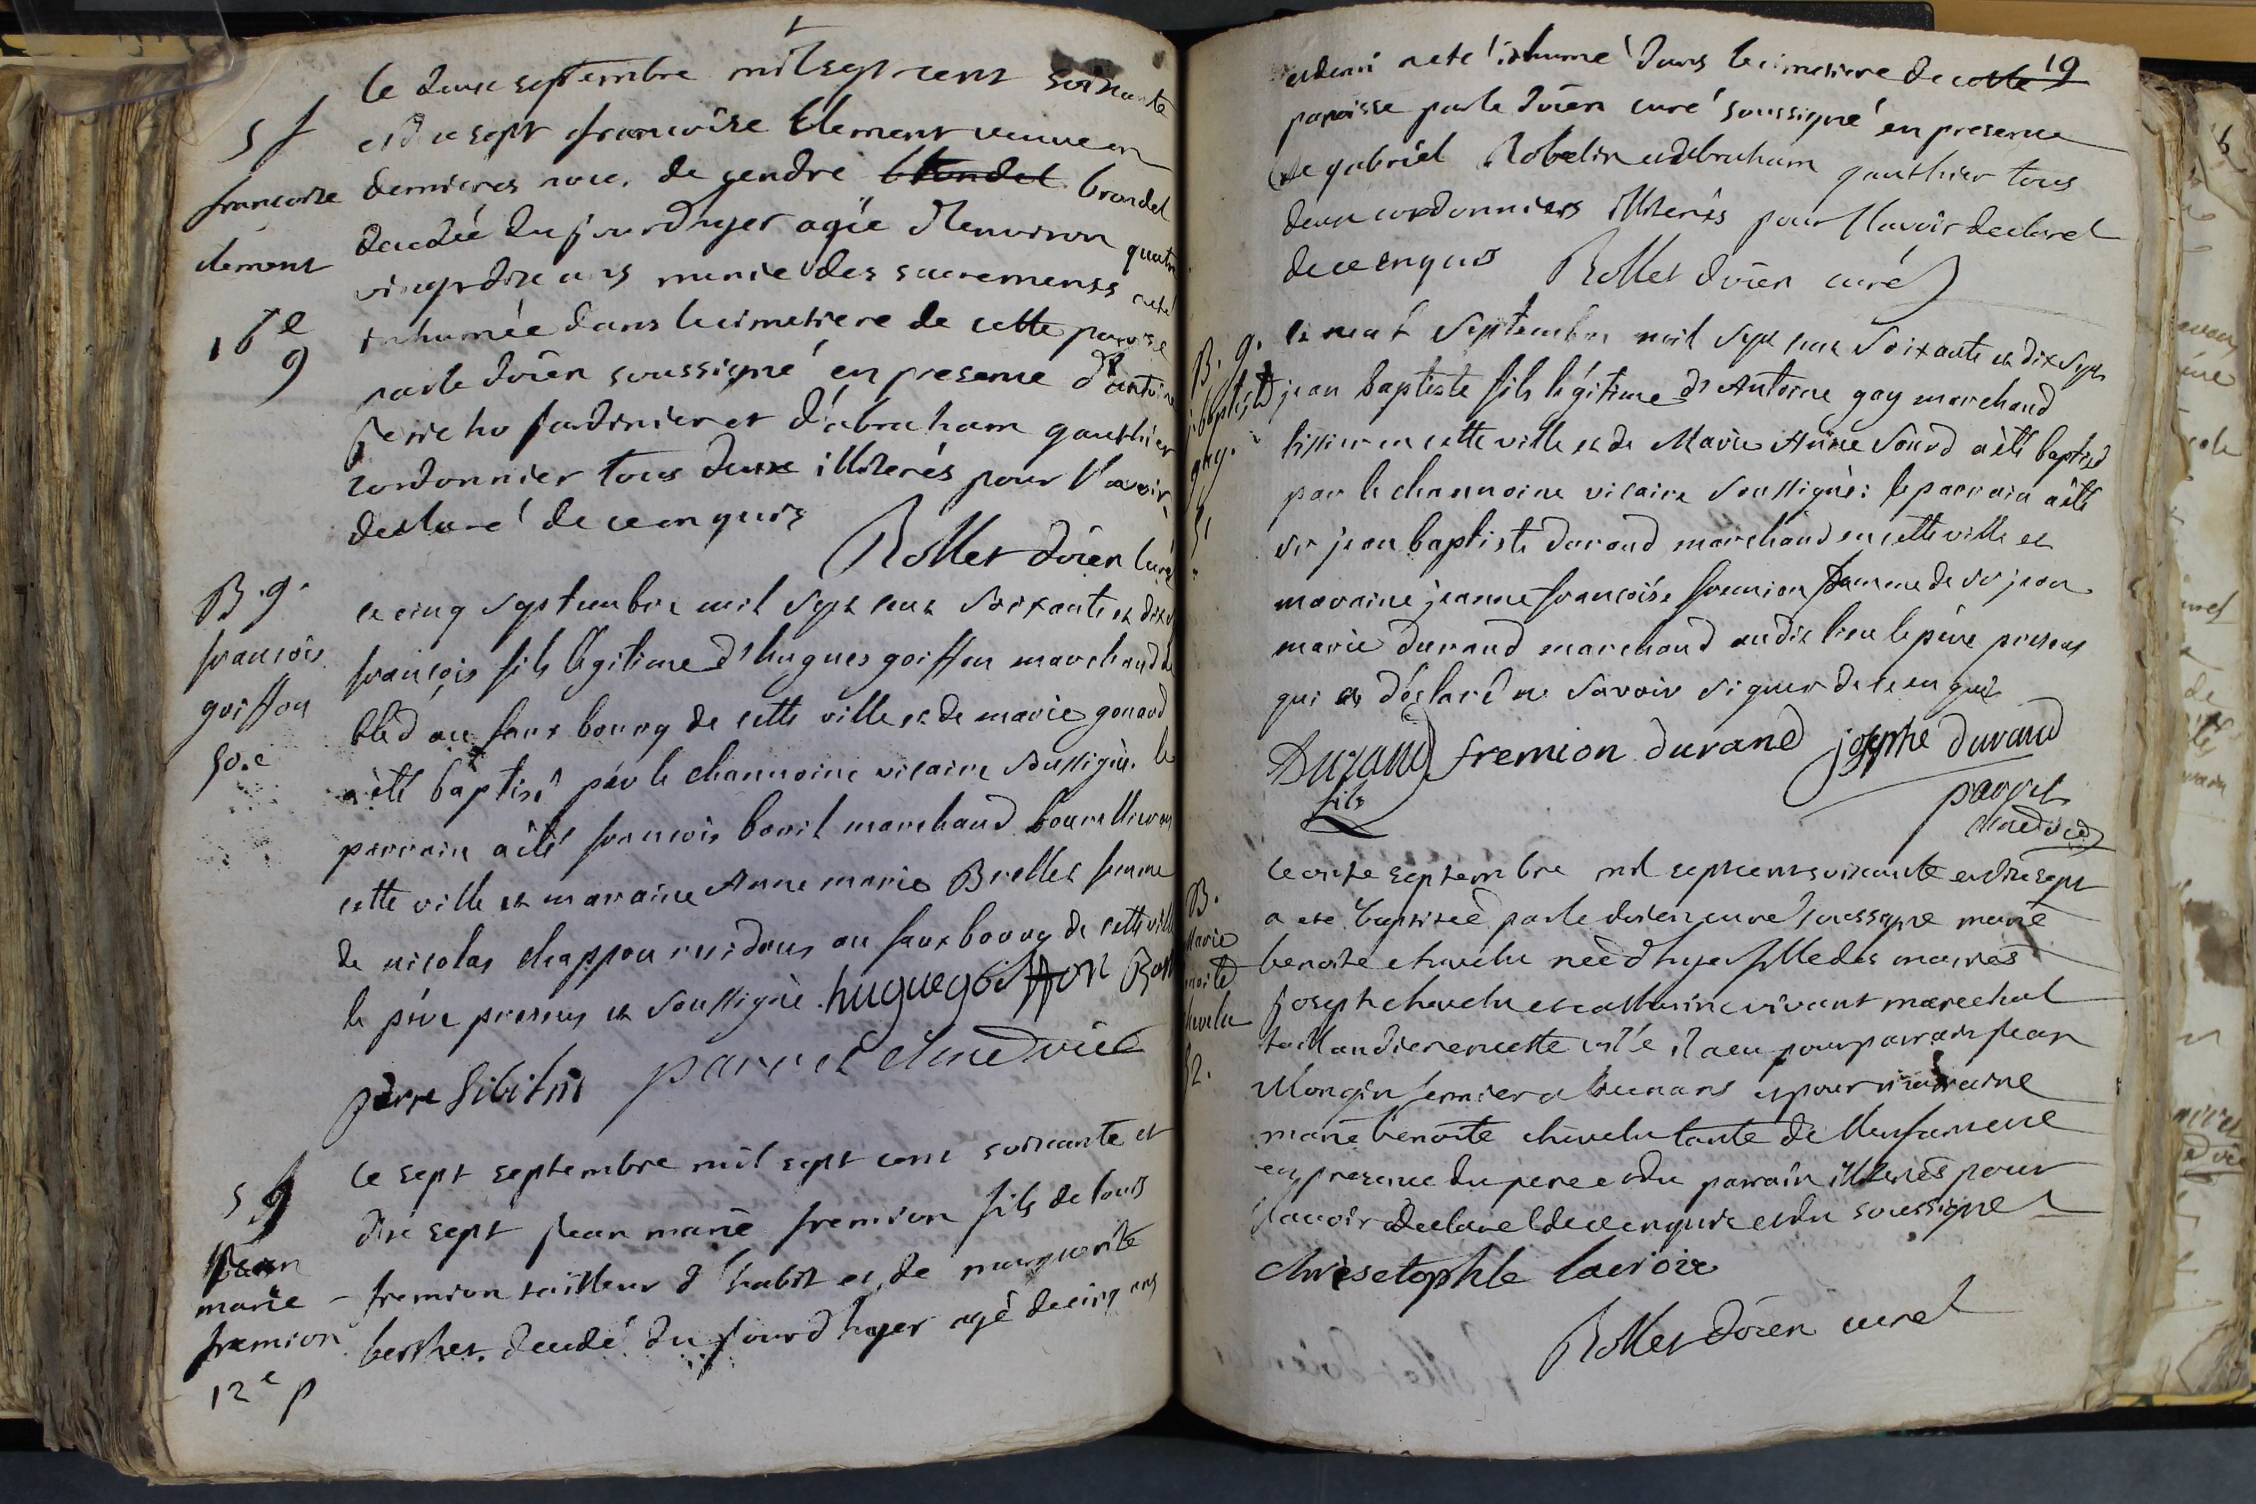 le deux septembre mil sept cent soixante
et dix sept francoise Clement veuve en
dernieres noces de gendre blondel brondel
decedée du jour d'hyer agée d'environ quatre
vingt dix ans munie des sacrements a eté
inhumée dans le cimetiere de cette paroisse
par le doien soussigné en presence d'antoine
jericho jardinier et d'abraham gauthier
cordonnier tous deux illiterés pour l'avoir
declaré de ce enquis
Rollet doien curé
S f
francoise
clement
le cinq septembre mil sept cent soixante et dix s
françois fils légitime d'hugues goiffon marchand de
bled au faux bourg de cette ville et de marie gonard
a été baptisé par le channoine vicaire soussigné. le
parrain a été francois bonil marchand bourellier en
cette ville et maraine Anne marie Brellet femme
de nicolas chappon residens au faux bourg de cette ville
le père present et soussigné. hugue goiffon Bon
père
B. g.
francois
goiffon
50.e
le sept septembre mil sept cent soixante et
dix sept jean marie fremion fils de louis
fremion tailleur d'habit et de marguerite
berthet. decedé du jour d'hyer agé de cinq ans
S g
jean
marie
fremion
12e p
19
et demi a eté inhumé dans le cimetiere de cette
paroisse par le doien curé soussigné en presence
de gabriel Robelin et d'abraham gauthier tous
deux cordonniers illiterés pour l'avoir declaré
de ce enquis Rollet doien curé
le neuf septembre mil sept cent soixante et dix sept
jean baptiste fils légitime d'Antoine gay marchand
tissier en cette ville et de Marie Anne Sourd a été baptisé
par le channoine vicaire soussigné: le parrain a été
sr jean baptiste durand marchand en cette ville et
maraine jeanne francoise fremion femme de sr jean
marie durand marchand au dit lieu le père present
qui a déclaré ne savoir signer de ce enquis
Durand fremion durand josephe durand
fils
B. g.
j. baptiste
gay.
51
le onze septembre mil sept cent soixante et dix sept
a eté baptisée par le doien curé soussigné marie
benoite chevelu née d'hyer fille des mariés
joseph chevelu et catherine vivant marechal
taillandier en cette ville il a eu pour parrain jean
Mongin fermier a et pour marraine
marie benoite chevelu tante de l'enfant
en presence du pere et du parrain illiterés pour
l'avoir declaré de ce enquis et du soussigné
christophle lacroix
Rollet doien curé
B.
Marie
benoite
chevelu
52.